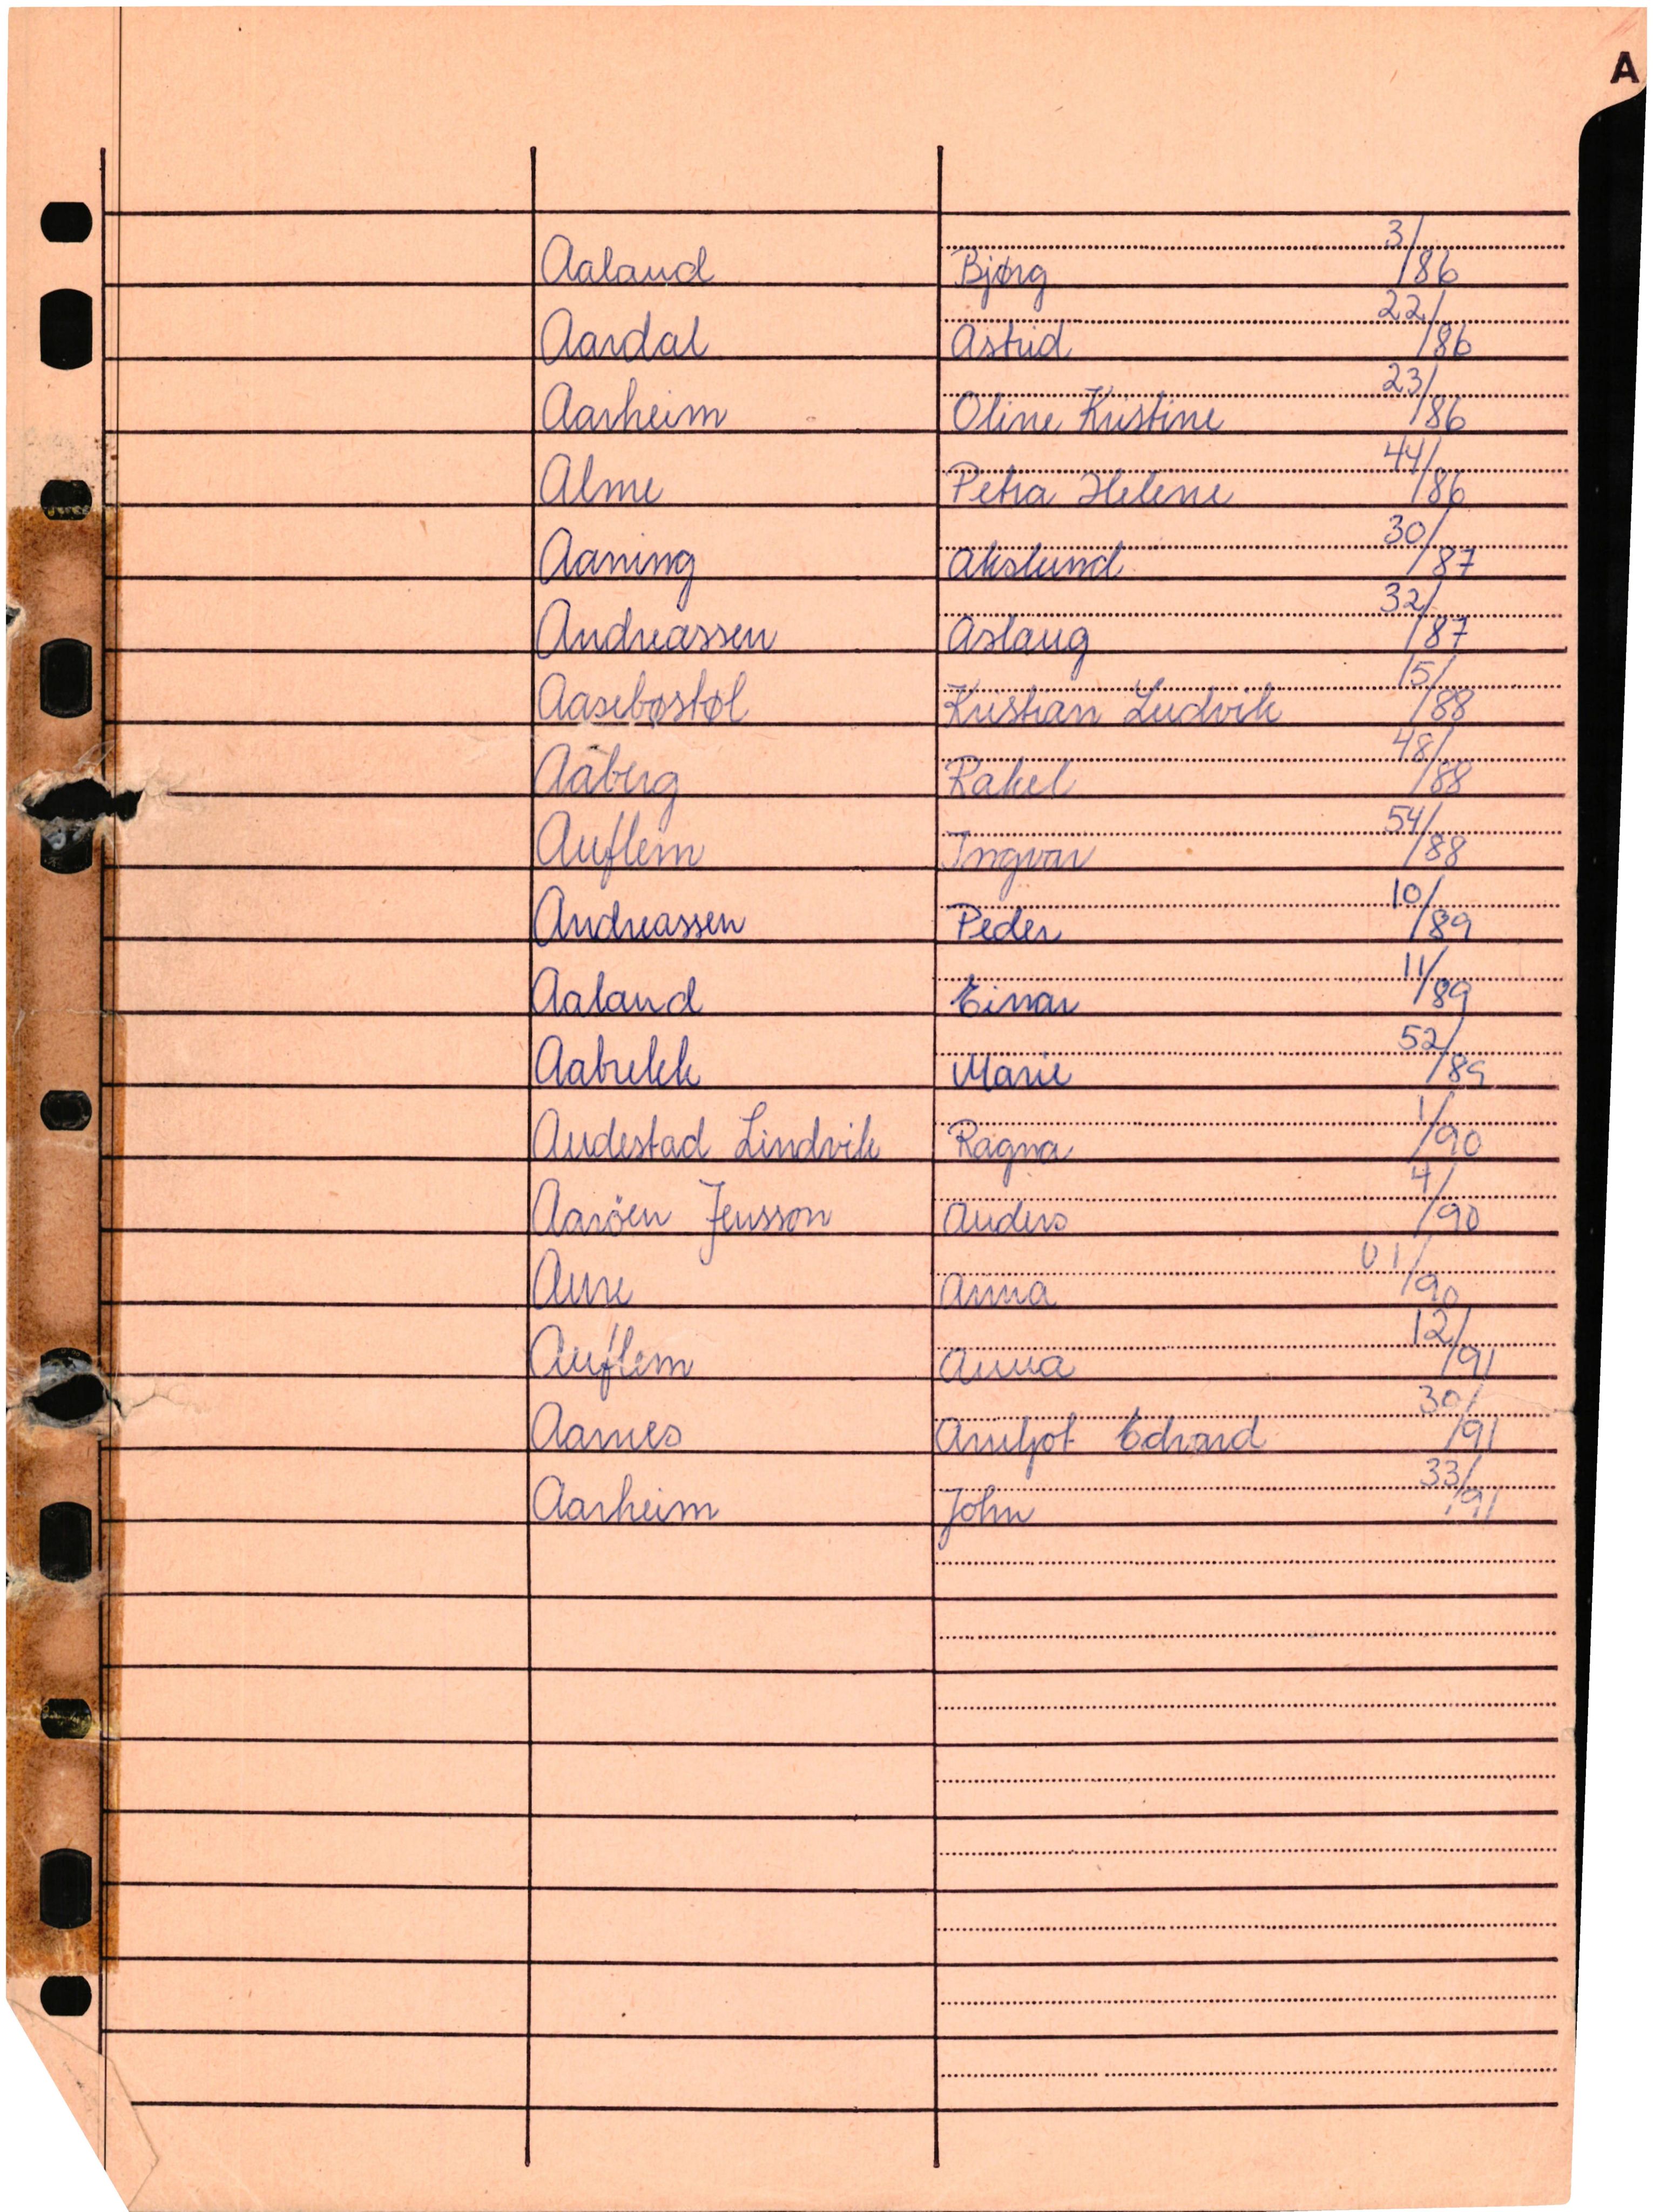 A
Aaland Bjørg 3/86
Aardal Astrid 22/86
Aarheim Oline Kristine 23/86
Alme Petra Helene 44/86
Aaning 30/87
Andreassen Aslaug 32/87
Aasebøstøl Kristian Ludvik 15/88
Aaberg Rakel 48/88
Auflem Ingvar 54/88
Andreassen Peder 10/89
Aaland Einar 11/89
Aabrekk Marie 52/89
Audestad Lindvik Ragna 1/90
Aarøen Jensson Anders 4/90
Aure Anna /90
Auflem Anna 12/91
Aarnes Arnljot Edvard 30/91
Aarheim John 33/91